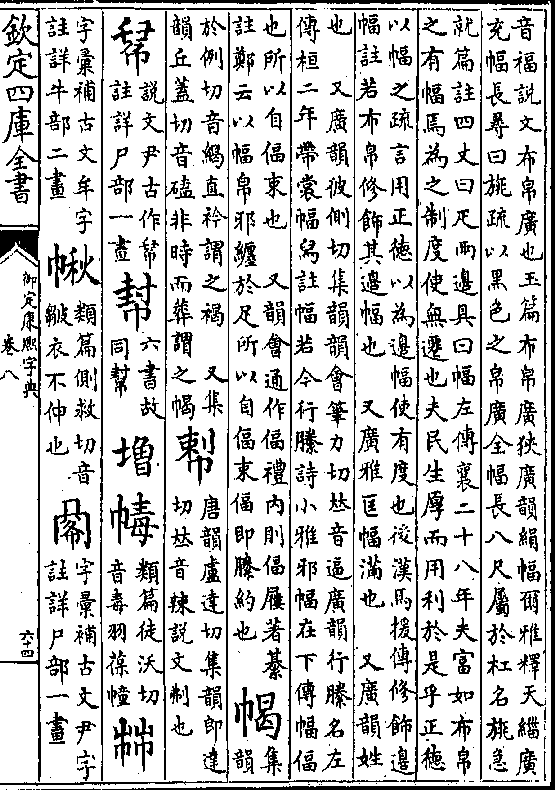 音福說文布帛廣也玉篇布帛廣狹廣韻絹幅爾雅釋天緇廣
充幅長尋曰旐疏以黑色之帛廣全幅長八尺屬於杠名旐急
就篇註四丈曰疋兩邊具曰幅左傳襄二十八年夫富如布帛
之有幅焉為之制度使無遷也夫民生厚而用利於是乎正德
以幅之疏言用正德以為邊幅使有度也後漢馬援傳修飾邊
幅註若布帛修飾其邊幅也 又廣雅匡幅滿也 又廣韻姓
也 又廣韻彼側切集韻韻會筆力切𠀤音逼廣韻行縢名左
傳桓二年帶裳幅舃註幅若今行縢詩小雅邪幅在下傳幅偪
也所以自偪束也 又韻會通作偪禮內則偪屨著綦
註鄭云以幅帛邪纏於足所以自偪束偪即縢約也
㡈
集韻
於例切音䊠直衿謂之裼 又集
韻丘蓋切音磕非時而葬謂之㡈
唐韻盧達切集韻郎達
切𠀤音辣說文𠜂也
說文尹古作𢃩
註詳尸部一畫
六書故
同幇
增
類篇徒沃切
音毒羽葆幢
字彙補古文年字
註詳牛部二畫
類篇側救切音
皺衣不伸也
字彙補古文尹字
註詳尸部一畫
欽定四庫全書
御定康熙字典
卷八
六十四